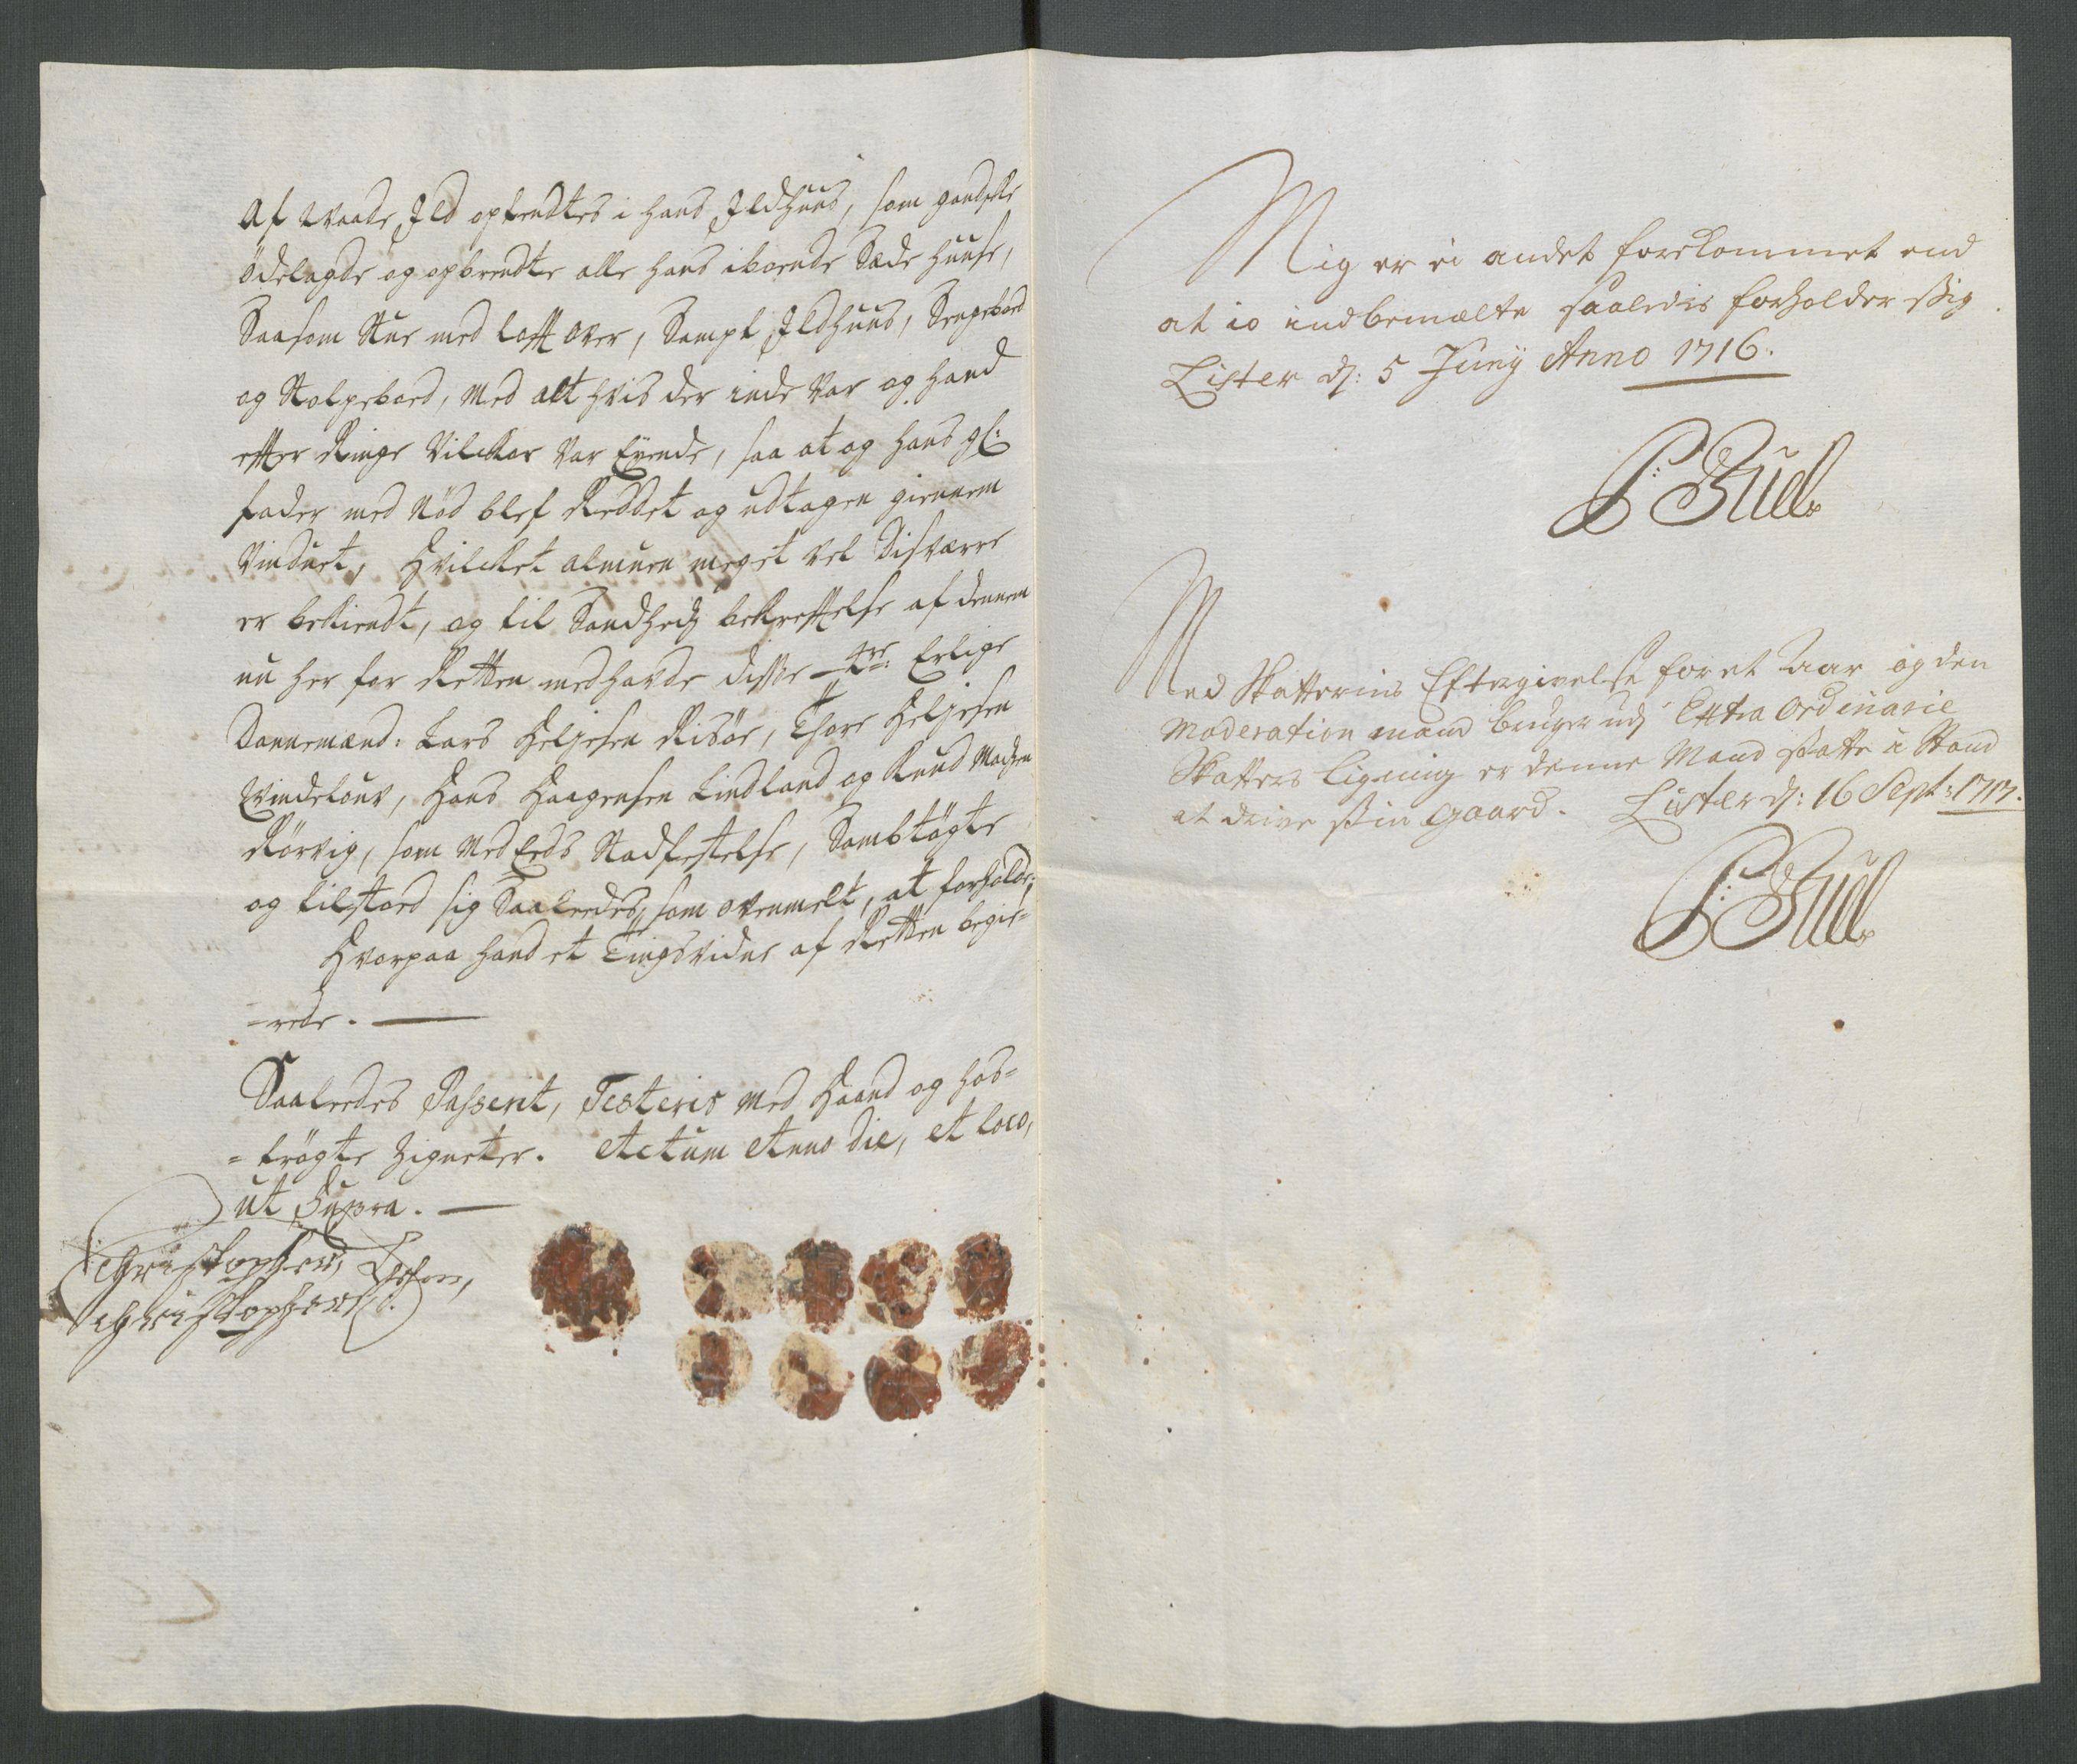 Af Waade Ild optendtes i hans Ildhuus, som gandske
ödelagde og opbrendte alle hans iboende Sæde huuse,
Saasom Stue med loft over, Sampt Ildhuus, Sengeboed
og Stolpeboed, Med alt hvis der inde Var og hand
efter Ringe Vilckor Var Eÿende, saa at og hans gl:
fader med Nöd blef Reddet og udtagen giennem
Vinduet, Hvilcket almuen meget vel Disværre
er bekiendt, og til Sandheds bekreftelse af dennem
nu her for Retten medhavde disse 4re: Erlige
Dannemænd: Lars Heljesen Risöe, Thore Heljesen
Hans Haagensen Lindland og Knud Madsen
Rörvig, som Med Eeds Stadfestelse, Sambtögte
og tilstoed sig Saaleedes, som ovenmelt, at forholde;
Hvorpaa hand et Tingsvidne af Retten begie-
=rede.
Saaleedes Passerit, Testeris med Haand og hos-
=trögte Zigneter. Actum Anno Die, et loco,
ut Supra.
Christopher
Christophersen
Mig er ei andet forekommet end
at io indbemælte saaledis forholder sig
Lister dj: 5 Junij Anno 1716.
P: Buch
Med Skatternis Eftergivelse for et Aar og den
Moderation mand bruger udj Extra Ordinarie
Skatters ligning er denne Mand satte i Stand
at drive sin Gaard. Lister dj: 16 Sept: 1717.
P: Buch